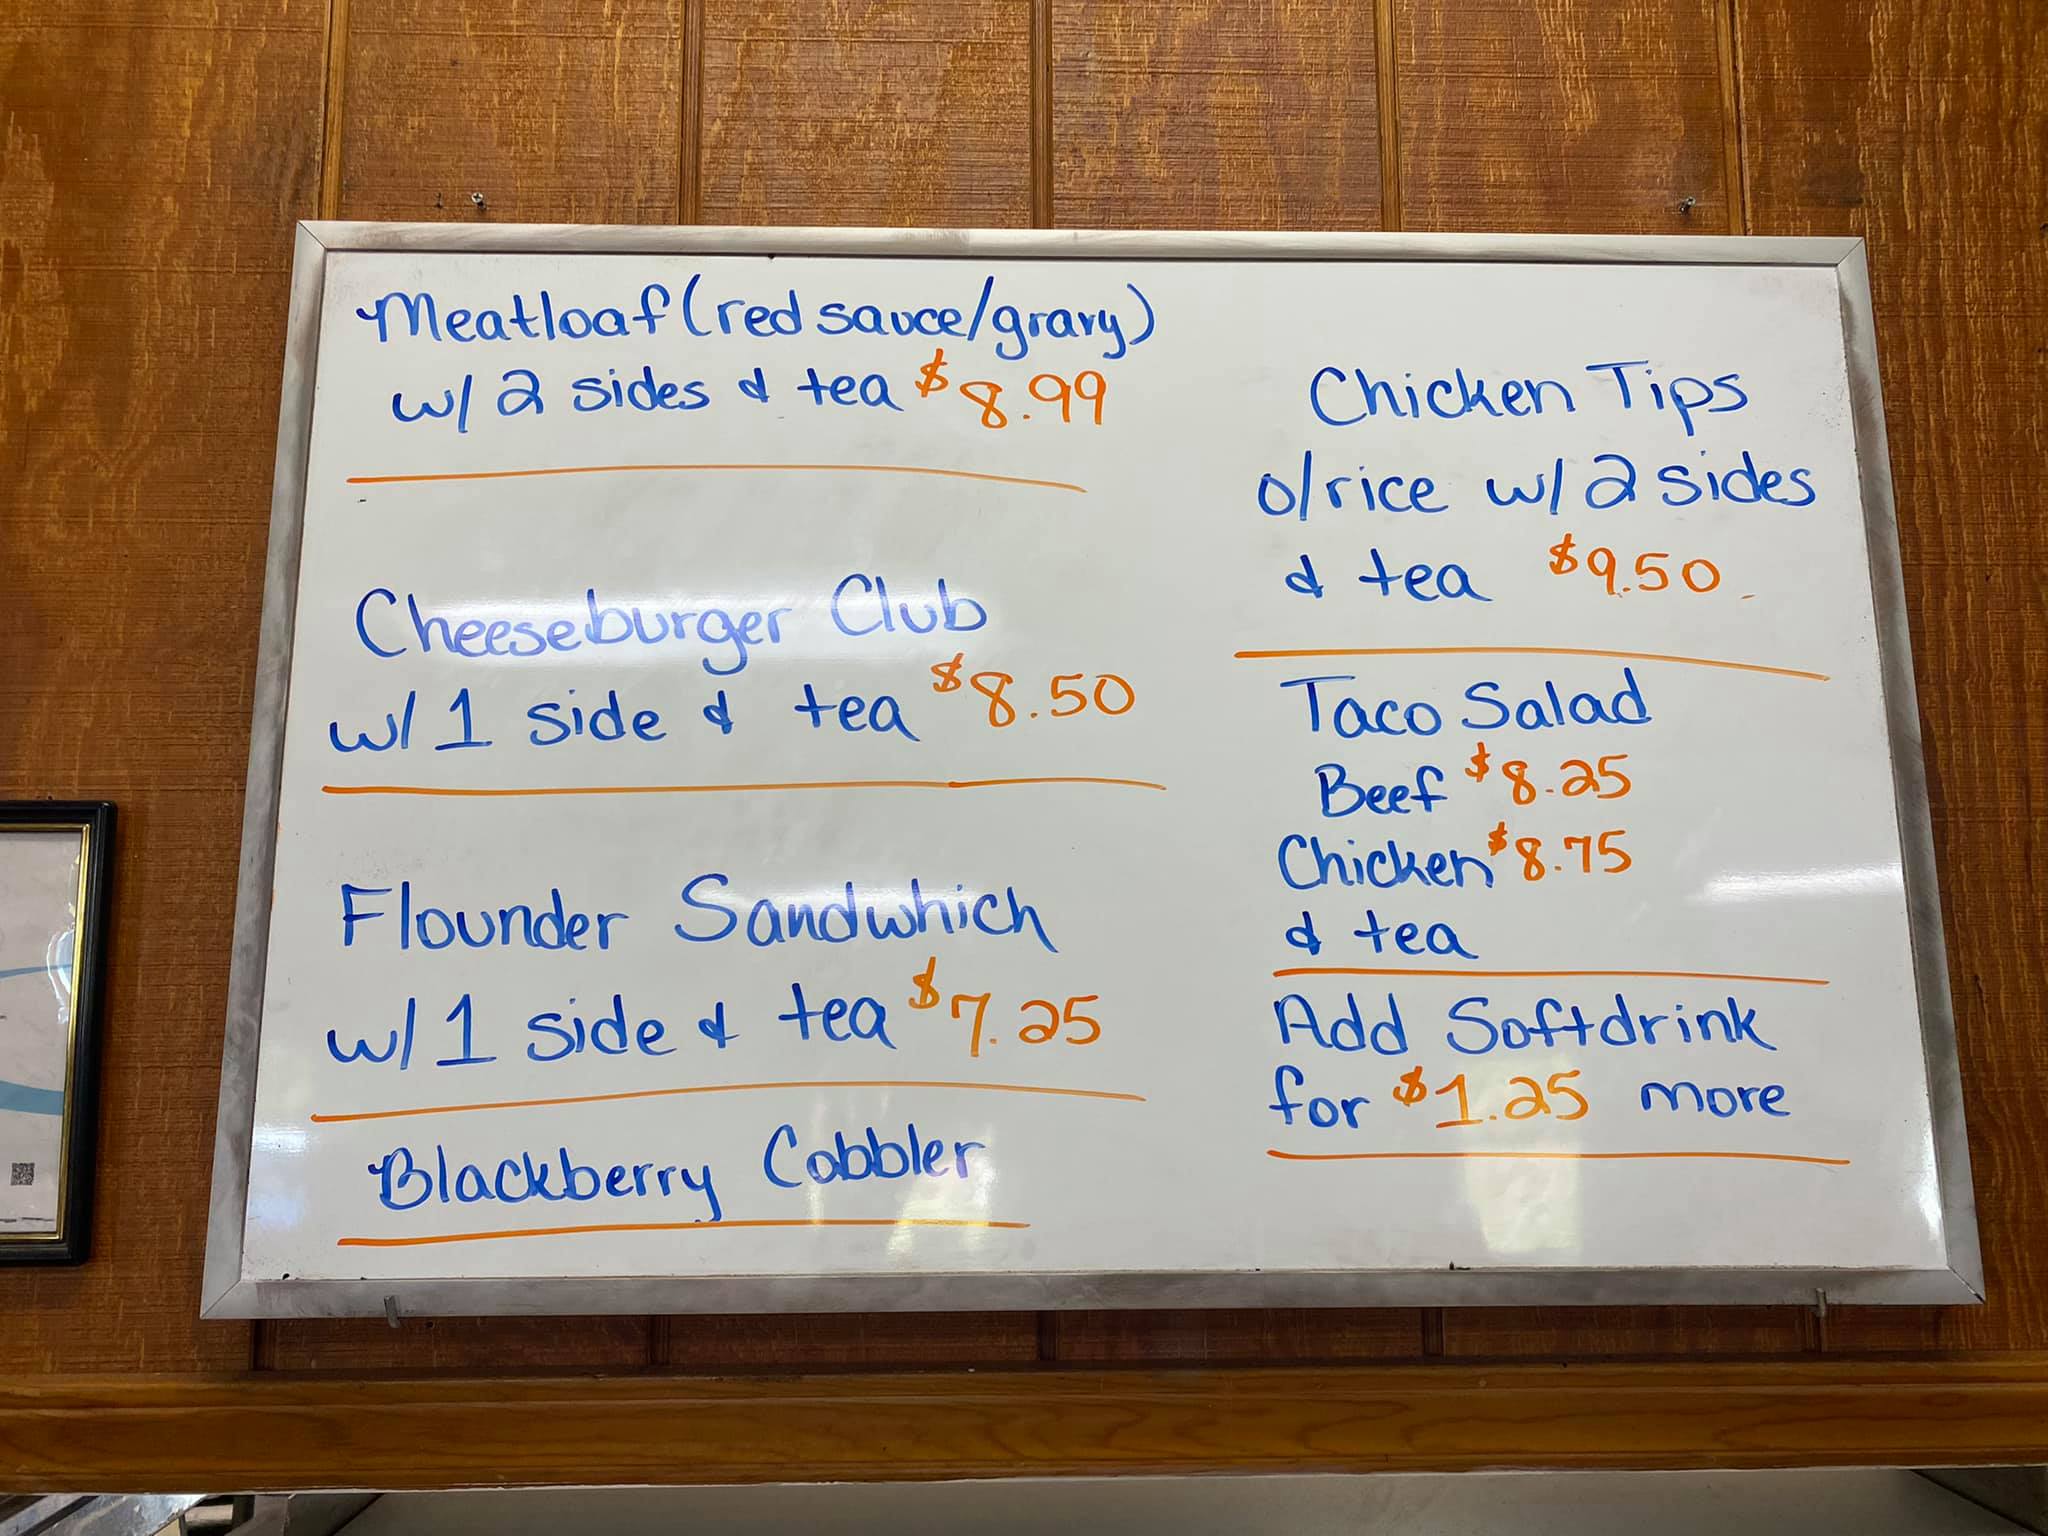 Meatloaf (red sauce/gravy)
w/ 2 sides & tea $8.99
Cheeseburger Club
w/ 1 side & tea $8.50
Flounder Sandwhich
w/ 1 side & tea $7.25
Blackberry Cobbler
Chicken Tips
o/rice w/ 2 sides
& tea $9.50
Taco Salad
Beef $8.25
Chicken $8.75
& tea
Add Softdrink
for $1.25 more